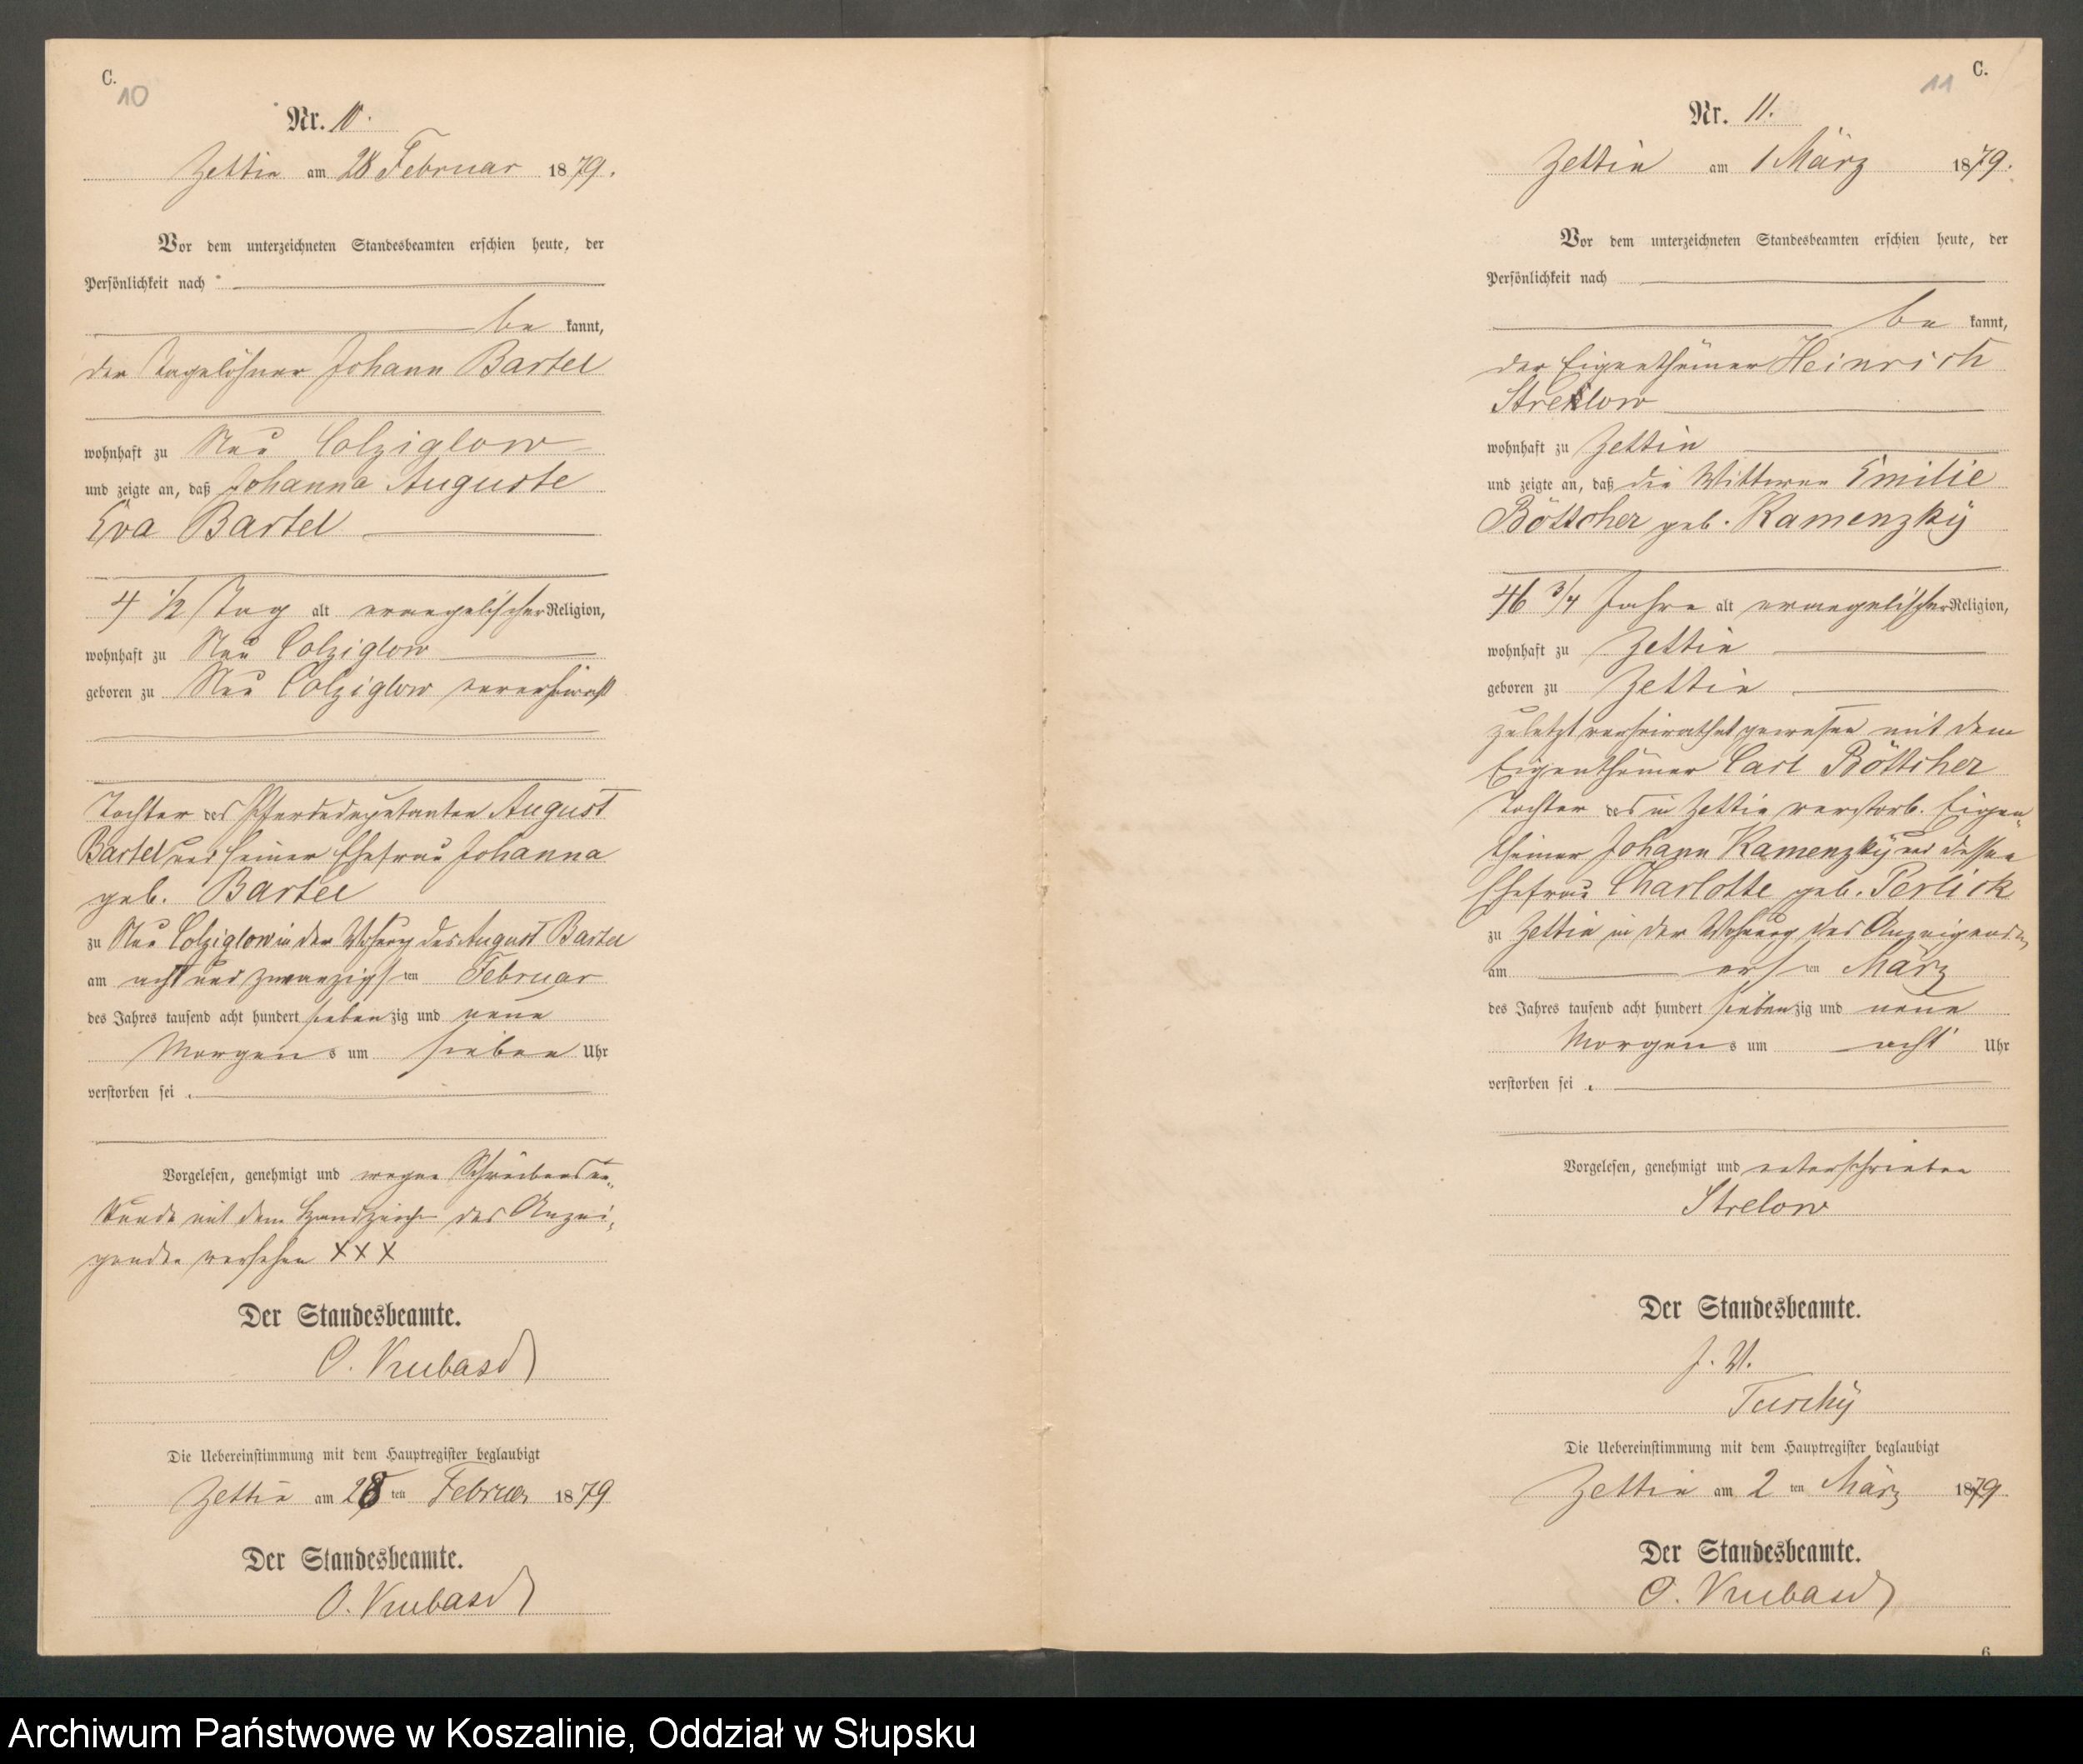 C.
10
Nr. 10.
Zettin am 28 Februar 1879.
Vor dem unterzeichneten Standesbeamten erschien heute, der
Persönlichkeit nach
be kannt,
der Tagelöhner Johann Bartel
wohnhaft zu Neu Colziglow
und zeigte an, daß Johanna Auguste
Eva Bartel
4 1/2 Tag alt evangelischer Religion,
wohnhaft zu Neu Colziglow
geboren zu Neu Colziglow
Tochter des Pferdedeputanten August
Bartel und seiner Ehefrau Johanna
geb. Bartel
zu Neu Colziglow in der Wohung des August Bartel
am acht und zwanzigsten Februar
des Jahres tausend acht hundert siebenzig und neun
Morgens um sieben Uhr
verstorben sei.
Vorgelesen, genehmigt und wegen Schreibensun-
kunde mit dem Handzeichen des Anzei-
genden versehen XXX
Der Standesbeamte.
O. Kubasd
Die Uebereinstimmung mit dem Hauptregister beglaubigt
Zettin am 28ten Februar 1879
Der Standesbeamte.
O. Kubasd
C.
11
Nr. 11.
Zettin am 1 März 1879.
Vor dem unterzeichneten Standesbeamten erschien heute, der
Persönlichkeit nach
be kannt,
der Eigenthümer Heinrich
Strelow
wohnhaft zu Zettin
und zeigte an, daß die Wittwe Emilie
Böttcher geb. Kamenzky
46 3/4 Jahre alt evangelischer Religion,
wohnhaft zu Zettin
geboren zu Zettin
zuletzt verheirathet gewesen mit dem
Eigenthümer Carl Böttcher
Tochter des in Zettin verstorb. Eigen-
thümer Johann Kamenzky und dessen
Ehefrau Charlotte geb. Perlick
zu Zettin in der Wohnung des Anzeigenden
am ersten März
des Jahres tausend acht hundert siebenzig und neun
Morgens um acht Uhr
verstorben sei.
Vorgelesen, genehmigt und unterschrieben
Strelow
Der Standesbeamte.
J. V.
Turschy
Die Uebereinstimmung mit dem Hauptregister beglaubigt
Zettin am 2ten März 1879
Der Standesbeamte.
O. Kubasd
6
Archiwum Państwowe w Koszalinie, Oddział w Słupsku